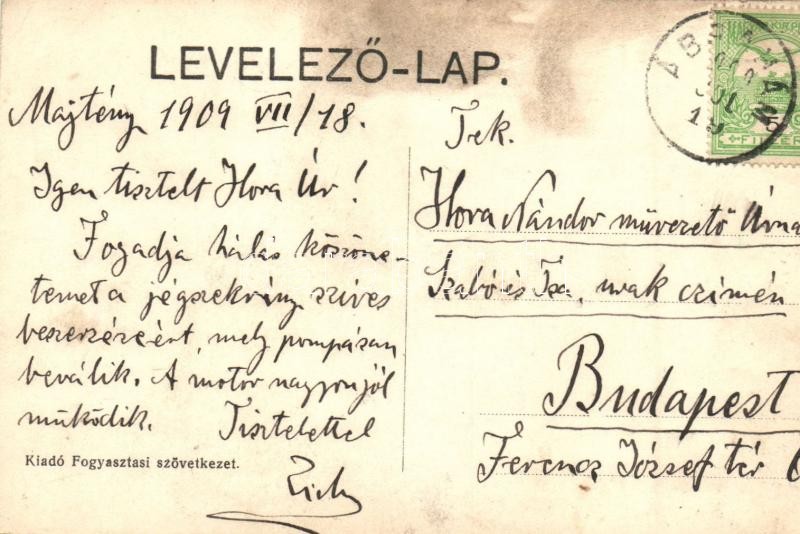 LEVELEZŐ-LAP.
Majtény 1909 VII/18.
Igen tisztelt Hora Úr!
Fogadja hálás köszöne-
temet a jégszekrény szives
beszerzéseért, mely pompásan
beválik. A motor nagyon jól
működik. Tisztelettel
Kiadó Fogyasztasi szövetkezet.
Tek.
Hora Nándor művezető Úrna
Szabó és urak czimén
Budapest
Ferencz József tér 6
JUL
19
FILLÉR